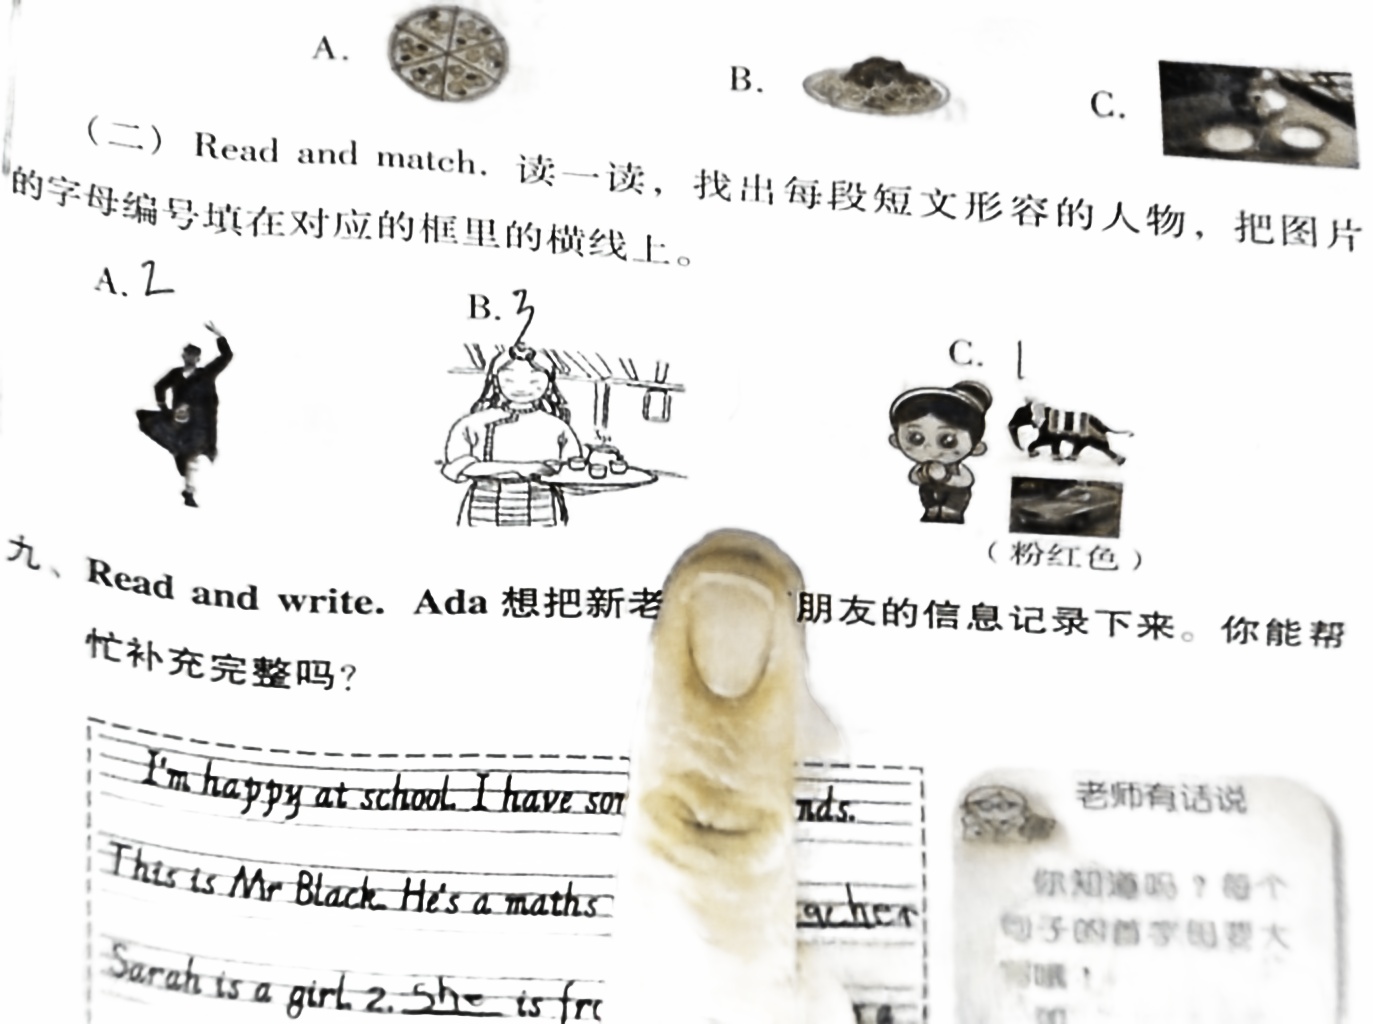 A.
B.
C.
（二） Read and match. 读一读，找出每段短文形容的人物，把图片
的字母编号填在对应的框里的横线上。
A. 2
B. 3
C. 1
（粉红色）
九、Read and write. Ada 想把新老 朋友的信息记录下来。你能帮
忙补充完整吗？
I'm happy at school. I have nds.
This is Mr Black. He's a maths acher
Sarah is a girl. 2. She is
老师有话说
你知道吗？每个
句子的首字母要大
写哦！